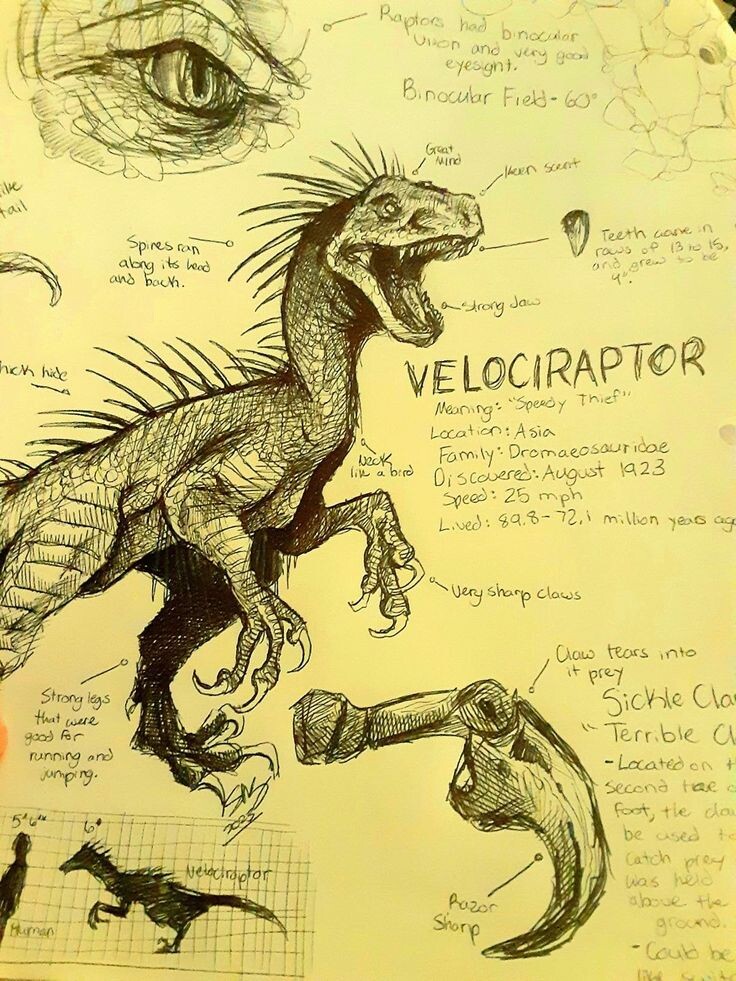 Raptors had binocular
vison and very good
eyesight.
Binocular Field - 60°
Great
Mind
Keen scent
tail
Spines ran
along its head
and back.
Teeth came in
rows of 13 to 15,
and grew to be
4".
Strong Jaw
hick hide
VELOCIRAPTOR
Meaning: "Speedy Thief"
Location: Asia
Family: Dromaeosauridae
Discovered: August 1923
Speed: 25 mph
Lived: 89.8-72.1 million years ago
Neck
like a bird
Very sharp claws
Claw tears into
it prey
Strong legs
that were
good for
running and
jumping.
Sickle Cla
"Terrible Cl
- Located on th
second toe o
foot, the cla
be used to
catch prey
was held
above the
ground.
- Could be
like
Razor
Sharp
SNS
2022
5'6"
6'
Velociraptor
Human